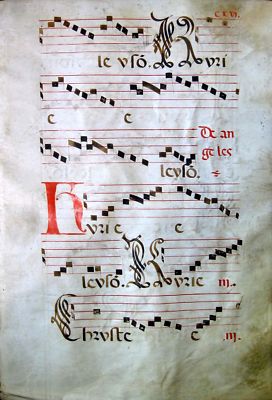 cxvi.
leysō. Kyri
e e
De an
ge les
leysō.
Kyrie e
leysō. Kyrie iij.
Chryste e iij.